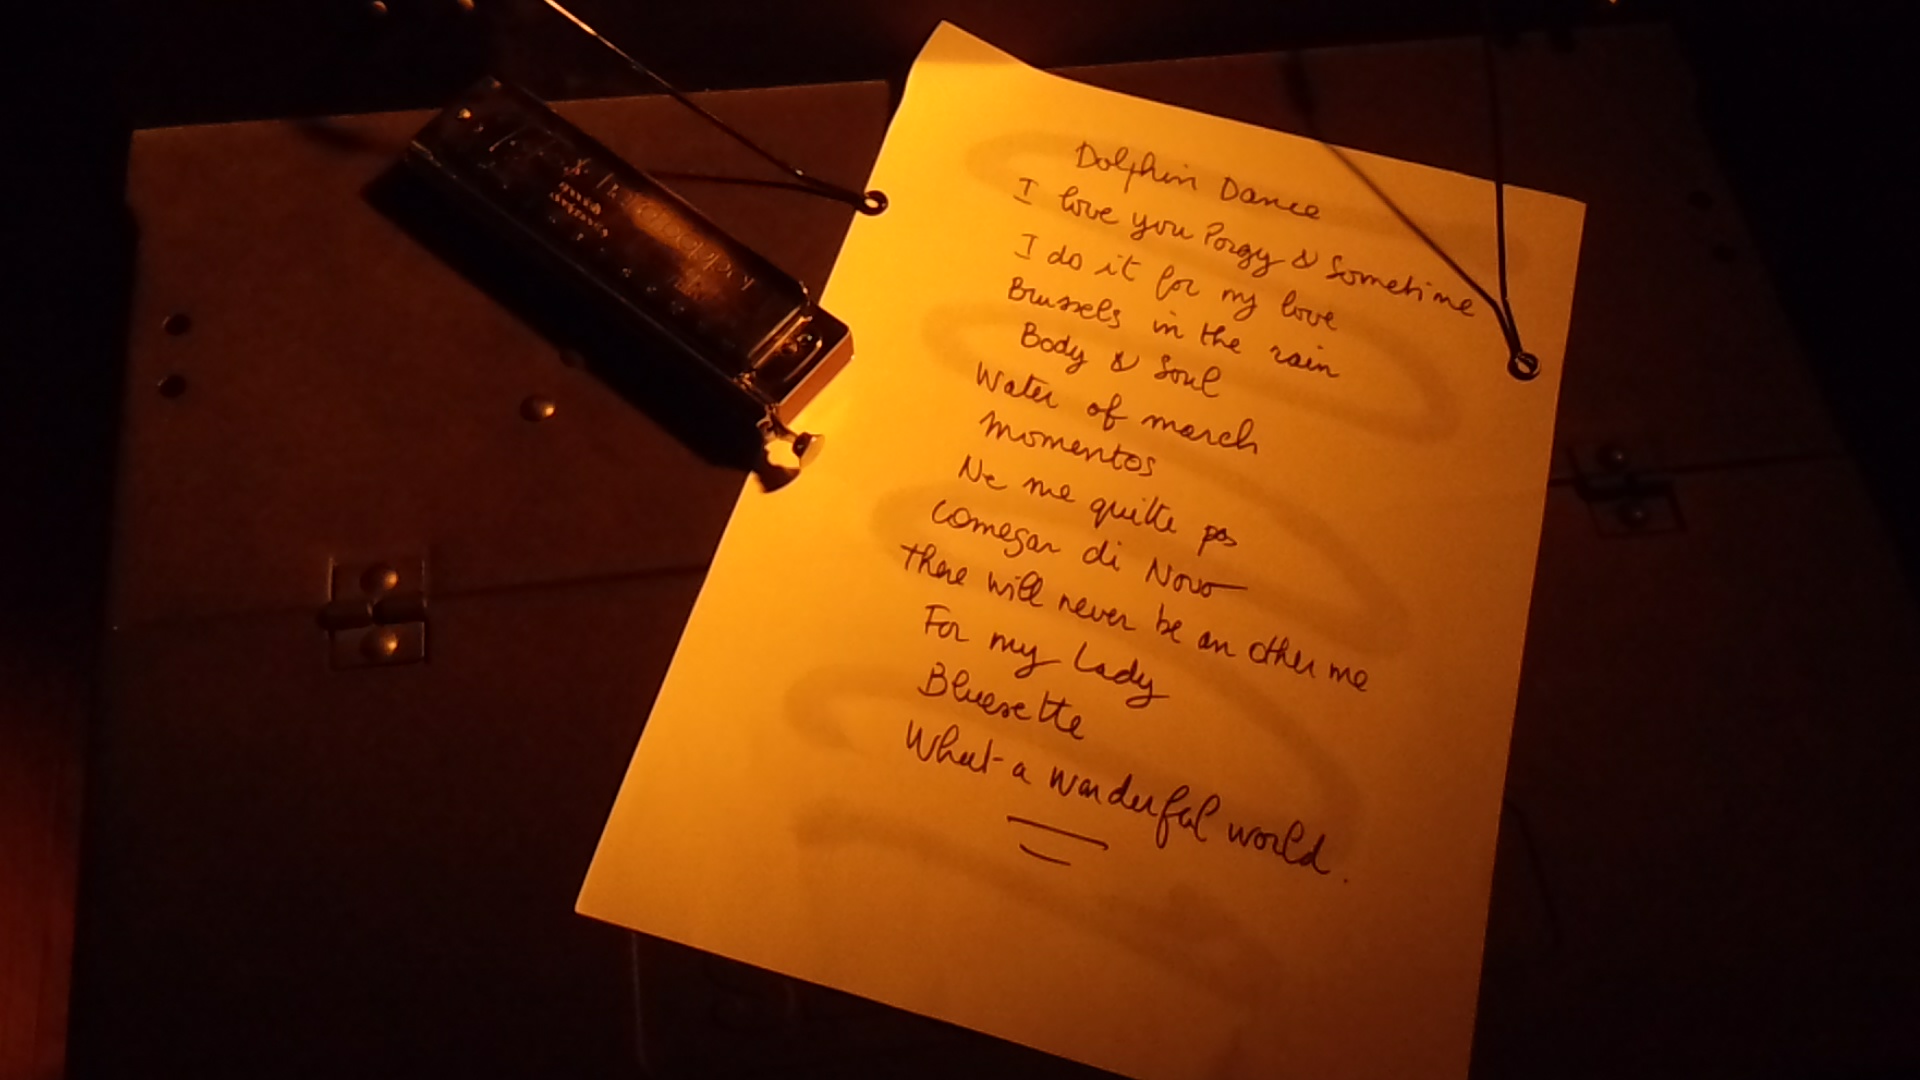 Dolphin Dance
I love you Porgy & Sometime
I do it for my love
Brussels in the rain
Body & Soul
Water of march
Momentos
Ne me quitte pas
Começar di Novo
There will never be an other me
For my Lady
Bluesette
What a wonderful world.